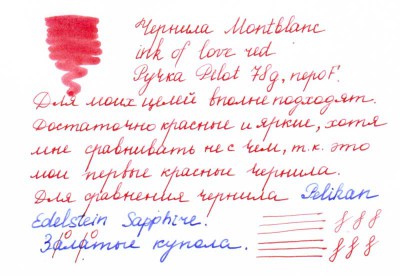 Чернила Montblanc
ink of love red
Ручка Pilot 78g, перо F.
Для моих целей вполне подходят.
Достаточно красные и яркие, хотя
мне сравнивать не с чем, т.к. это
мои первые красные чернила.
Для сравнения чернила Pelikan
Edelstein Sapphire.
Залатые купола.